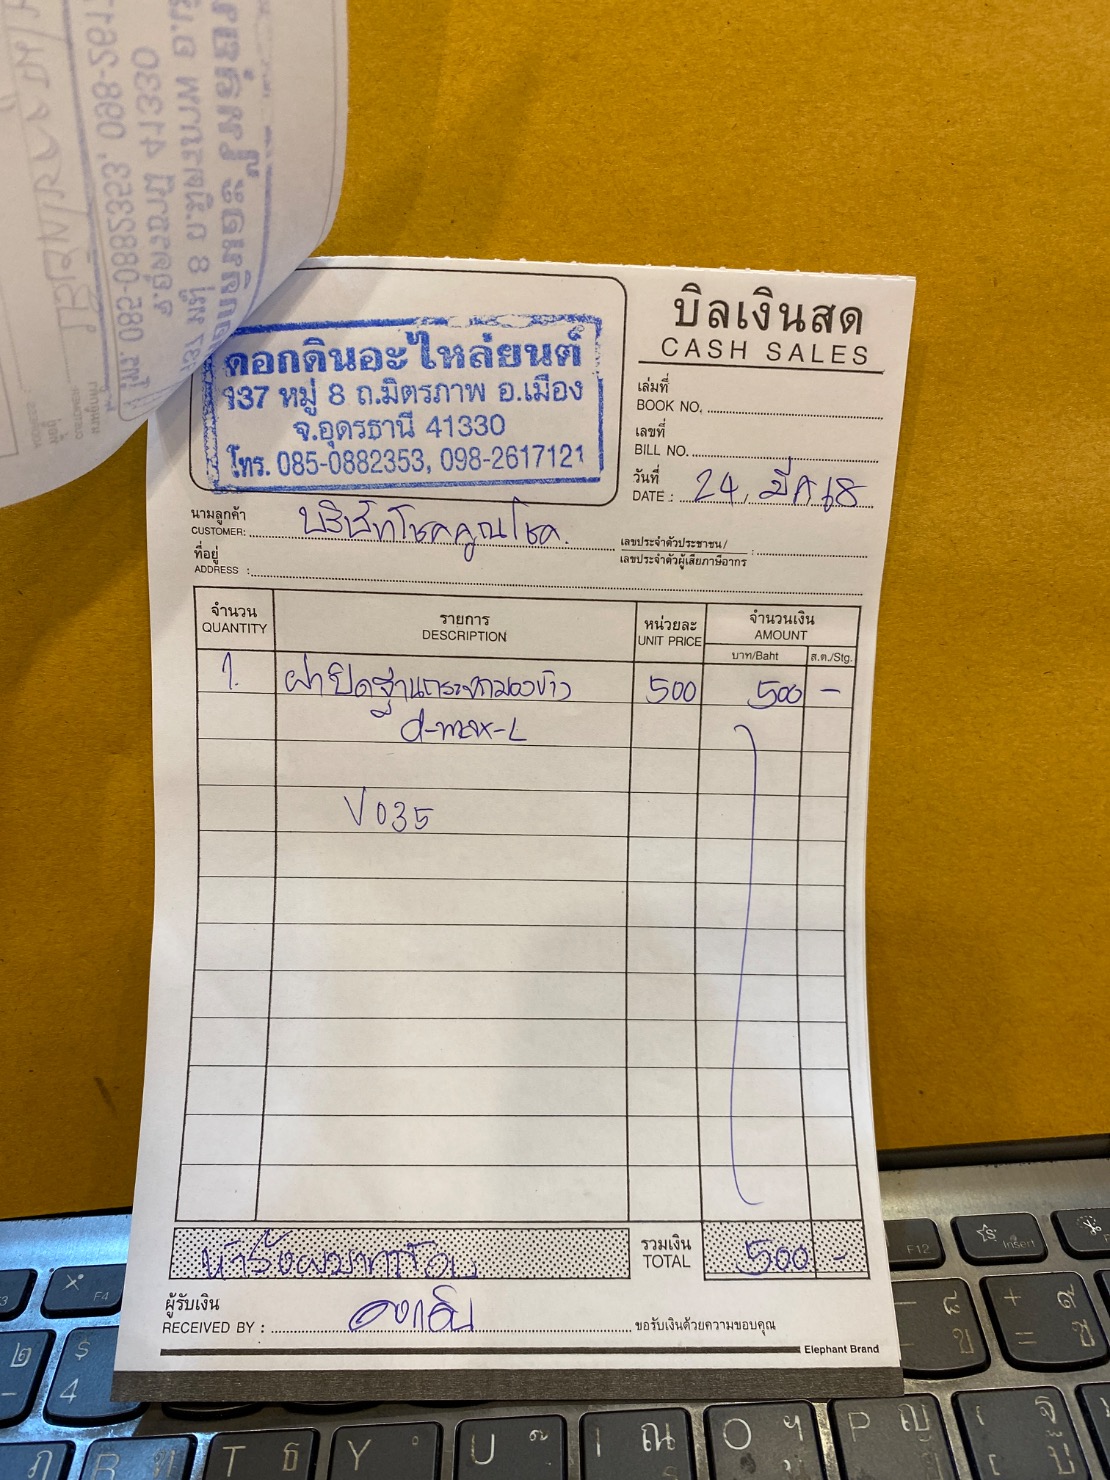 บิลเงินสด
CASH SALES
ดอกดินอะไหล่ยนต์
137 หมู่ 8 ถ.มิตรภาพ อ.เมือง
จ.อุดรธานี 41330
โทร. 085-0882353, 098-2617121
เล่มที่
BOOK NO.
เลขที่
BILL NO.
วันที่
DATE : 24, มีค 68
นามลูกค้า
CUSTOMER: บริษัทโชคคูณโชค.
เลขประจำตัวประชาชน/
เลขประจำตัวผู้เสียภาษีอากร :
ที่อยู่
ADDRESS :
จำนวน รายการ หน่วยละ จำนวนเงิน
QUANTITY DESCRIPTION UNIT PRICE AMOUNT
บาท/Baht ส.ต./Stg.
1. ฝาปิดฐานกระจกมองข้าง 500 500 -
d-max-L
V035
ห้าร้อยบาทถ้วน รวมเงิน 500 -
TOTAL
ผู้รับเงิน
RECEIVED BY : ดอกดิน ขอรับเงินด้วยความขอบคุณ
Elephant Brand
F4
F12
Insert
$
4
R
T ธ
Y
U
I ณ
O ฯ
P ญ